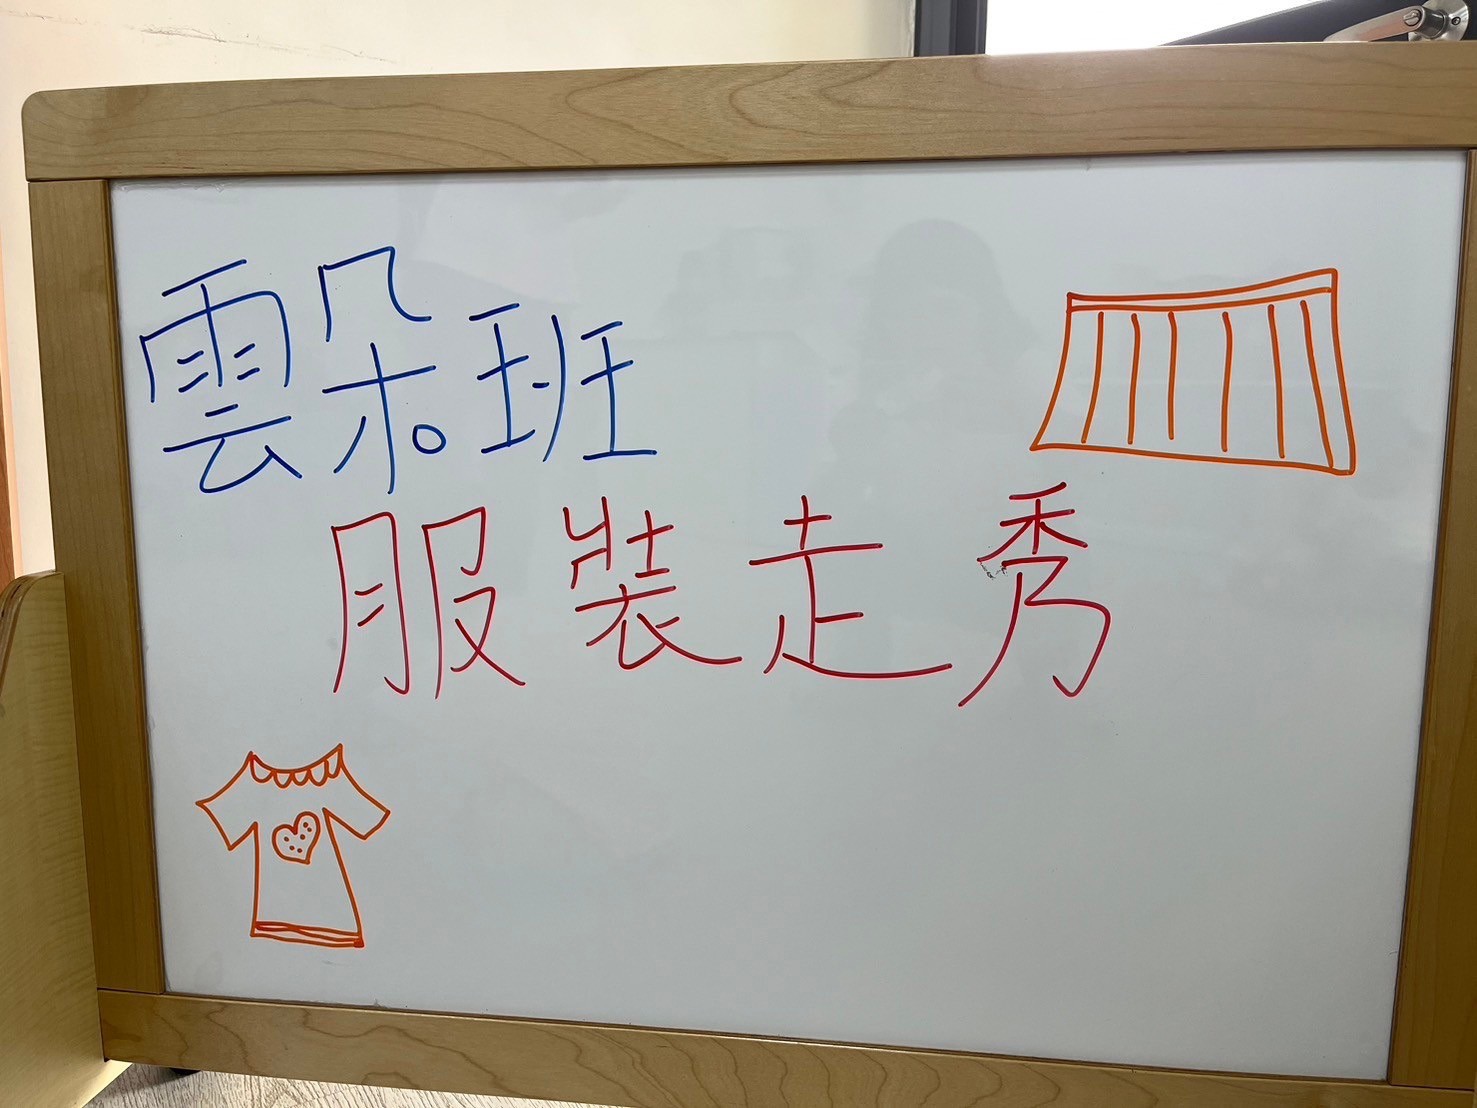 雲朵班
服裝走秀